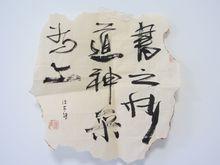 書之妙
道神采
為上